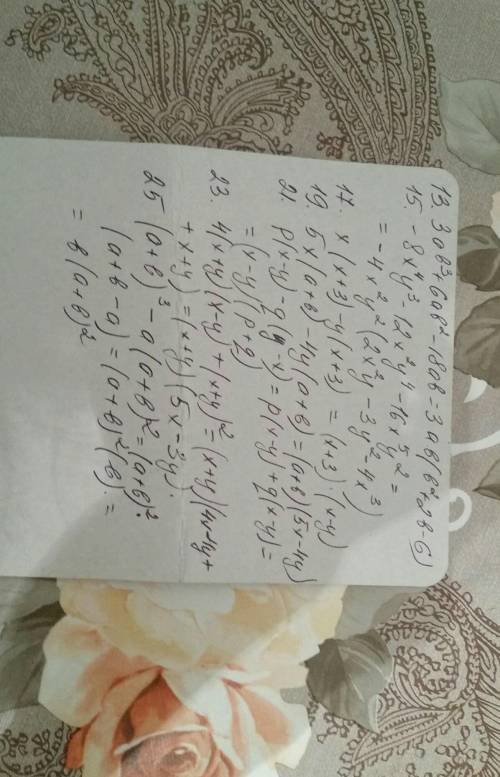 13. 3ab³ + 6ab² - 18ab = 3ab(b² + 2b - 6)
15 - 8x⁴y³ - 12x²y⁴ - 16x⁵y² =
= -4x²y²(2x²y - 3y² - 4x³)
17. x(x+3) - y(x+3) = (x+3)(x-y)
19. 5x(a+b) - 4y(a+b) = (a+b)(5x-4y)
21. p(x-y) - q(y-x) = p(x-y) + q(x-y) =
= (x-y)(p+q)
23. 4(x+y)(x-y) + (x+y)² = (x+y)(4x-4y+
+x+y) = (x+y)(5x-3y).
25 (a+b)³ - a(a+b)² = (a+b)².
(a+b-a) = (a+b)²(b). =
= b(a+b)²